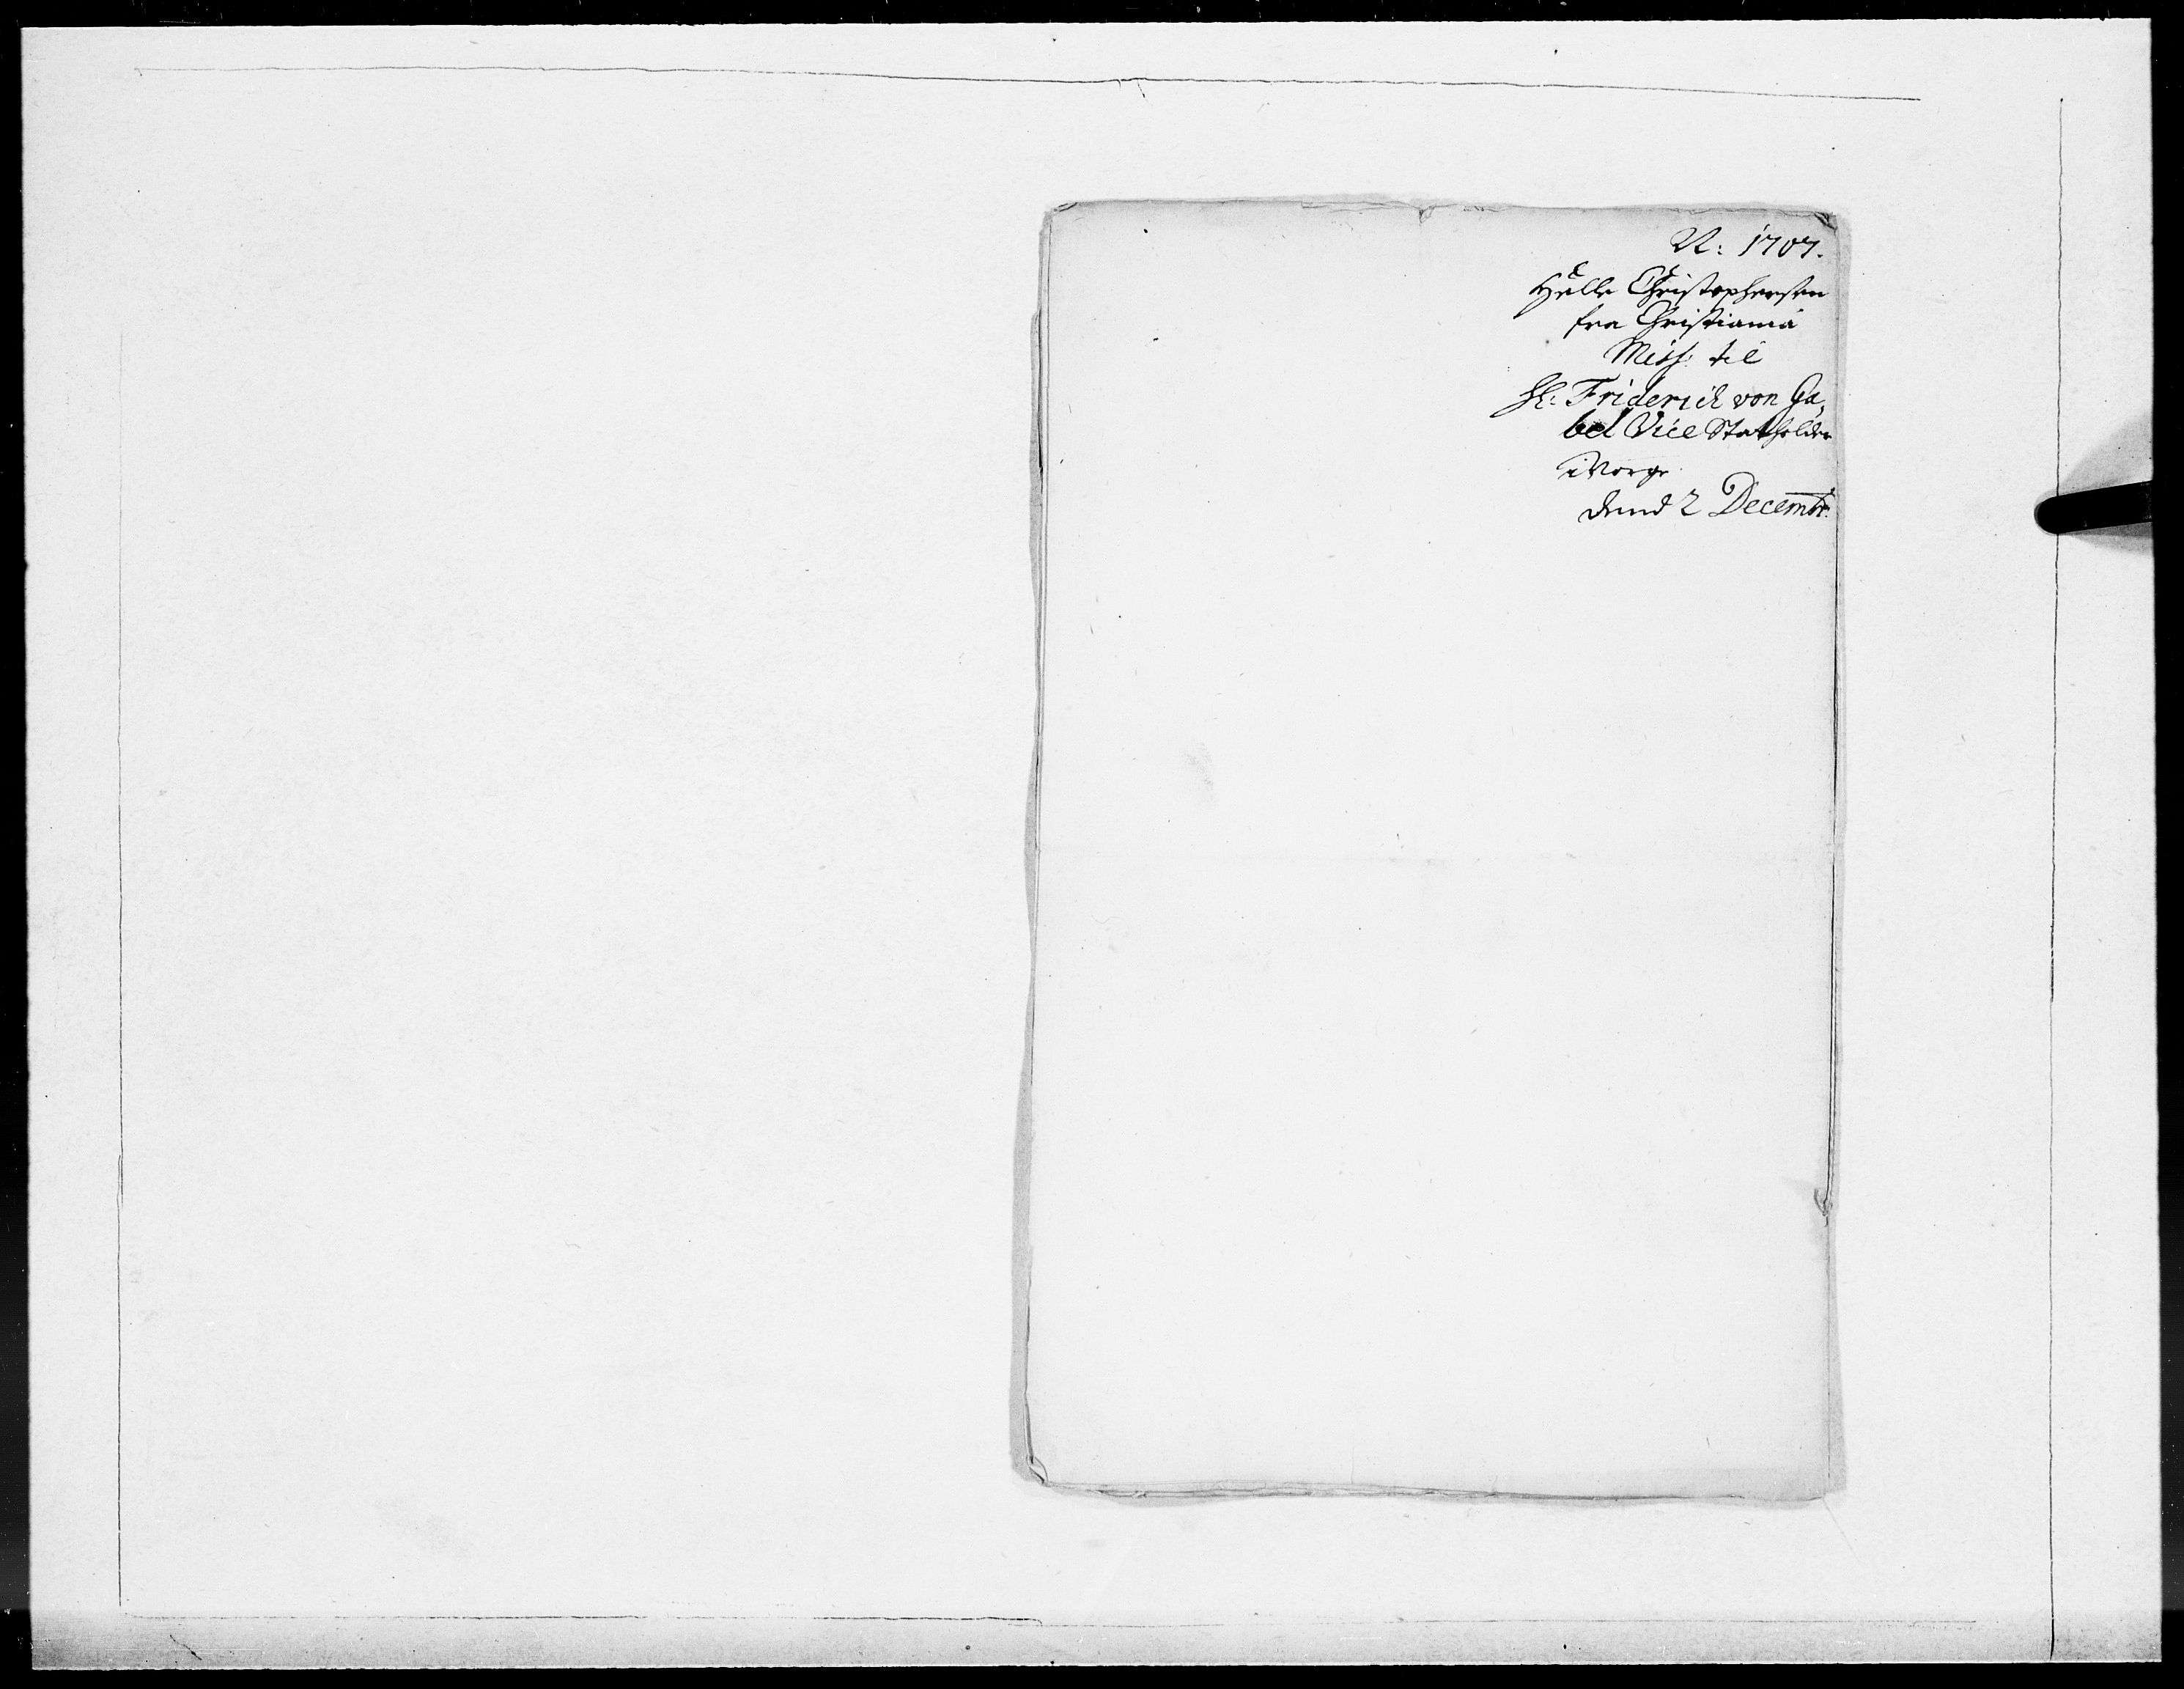 A: 1707.
Hulle Christophersen
fra Christiania
Miss: til
H: Friderich von Ga„
bel Vice Statholder
i Norge
dend 2 Decembr: